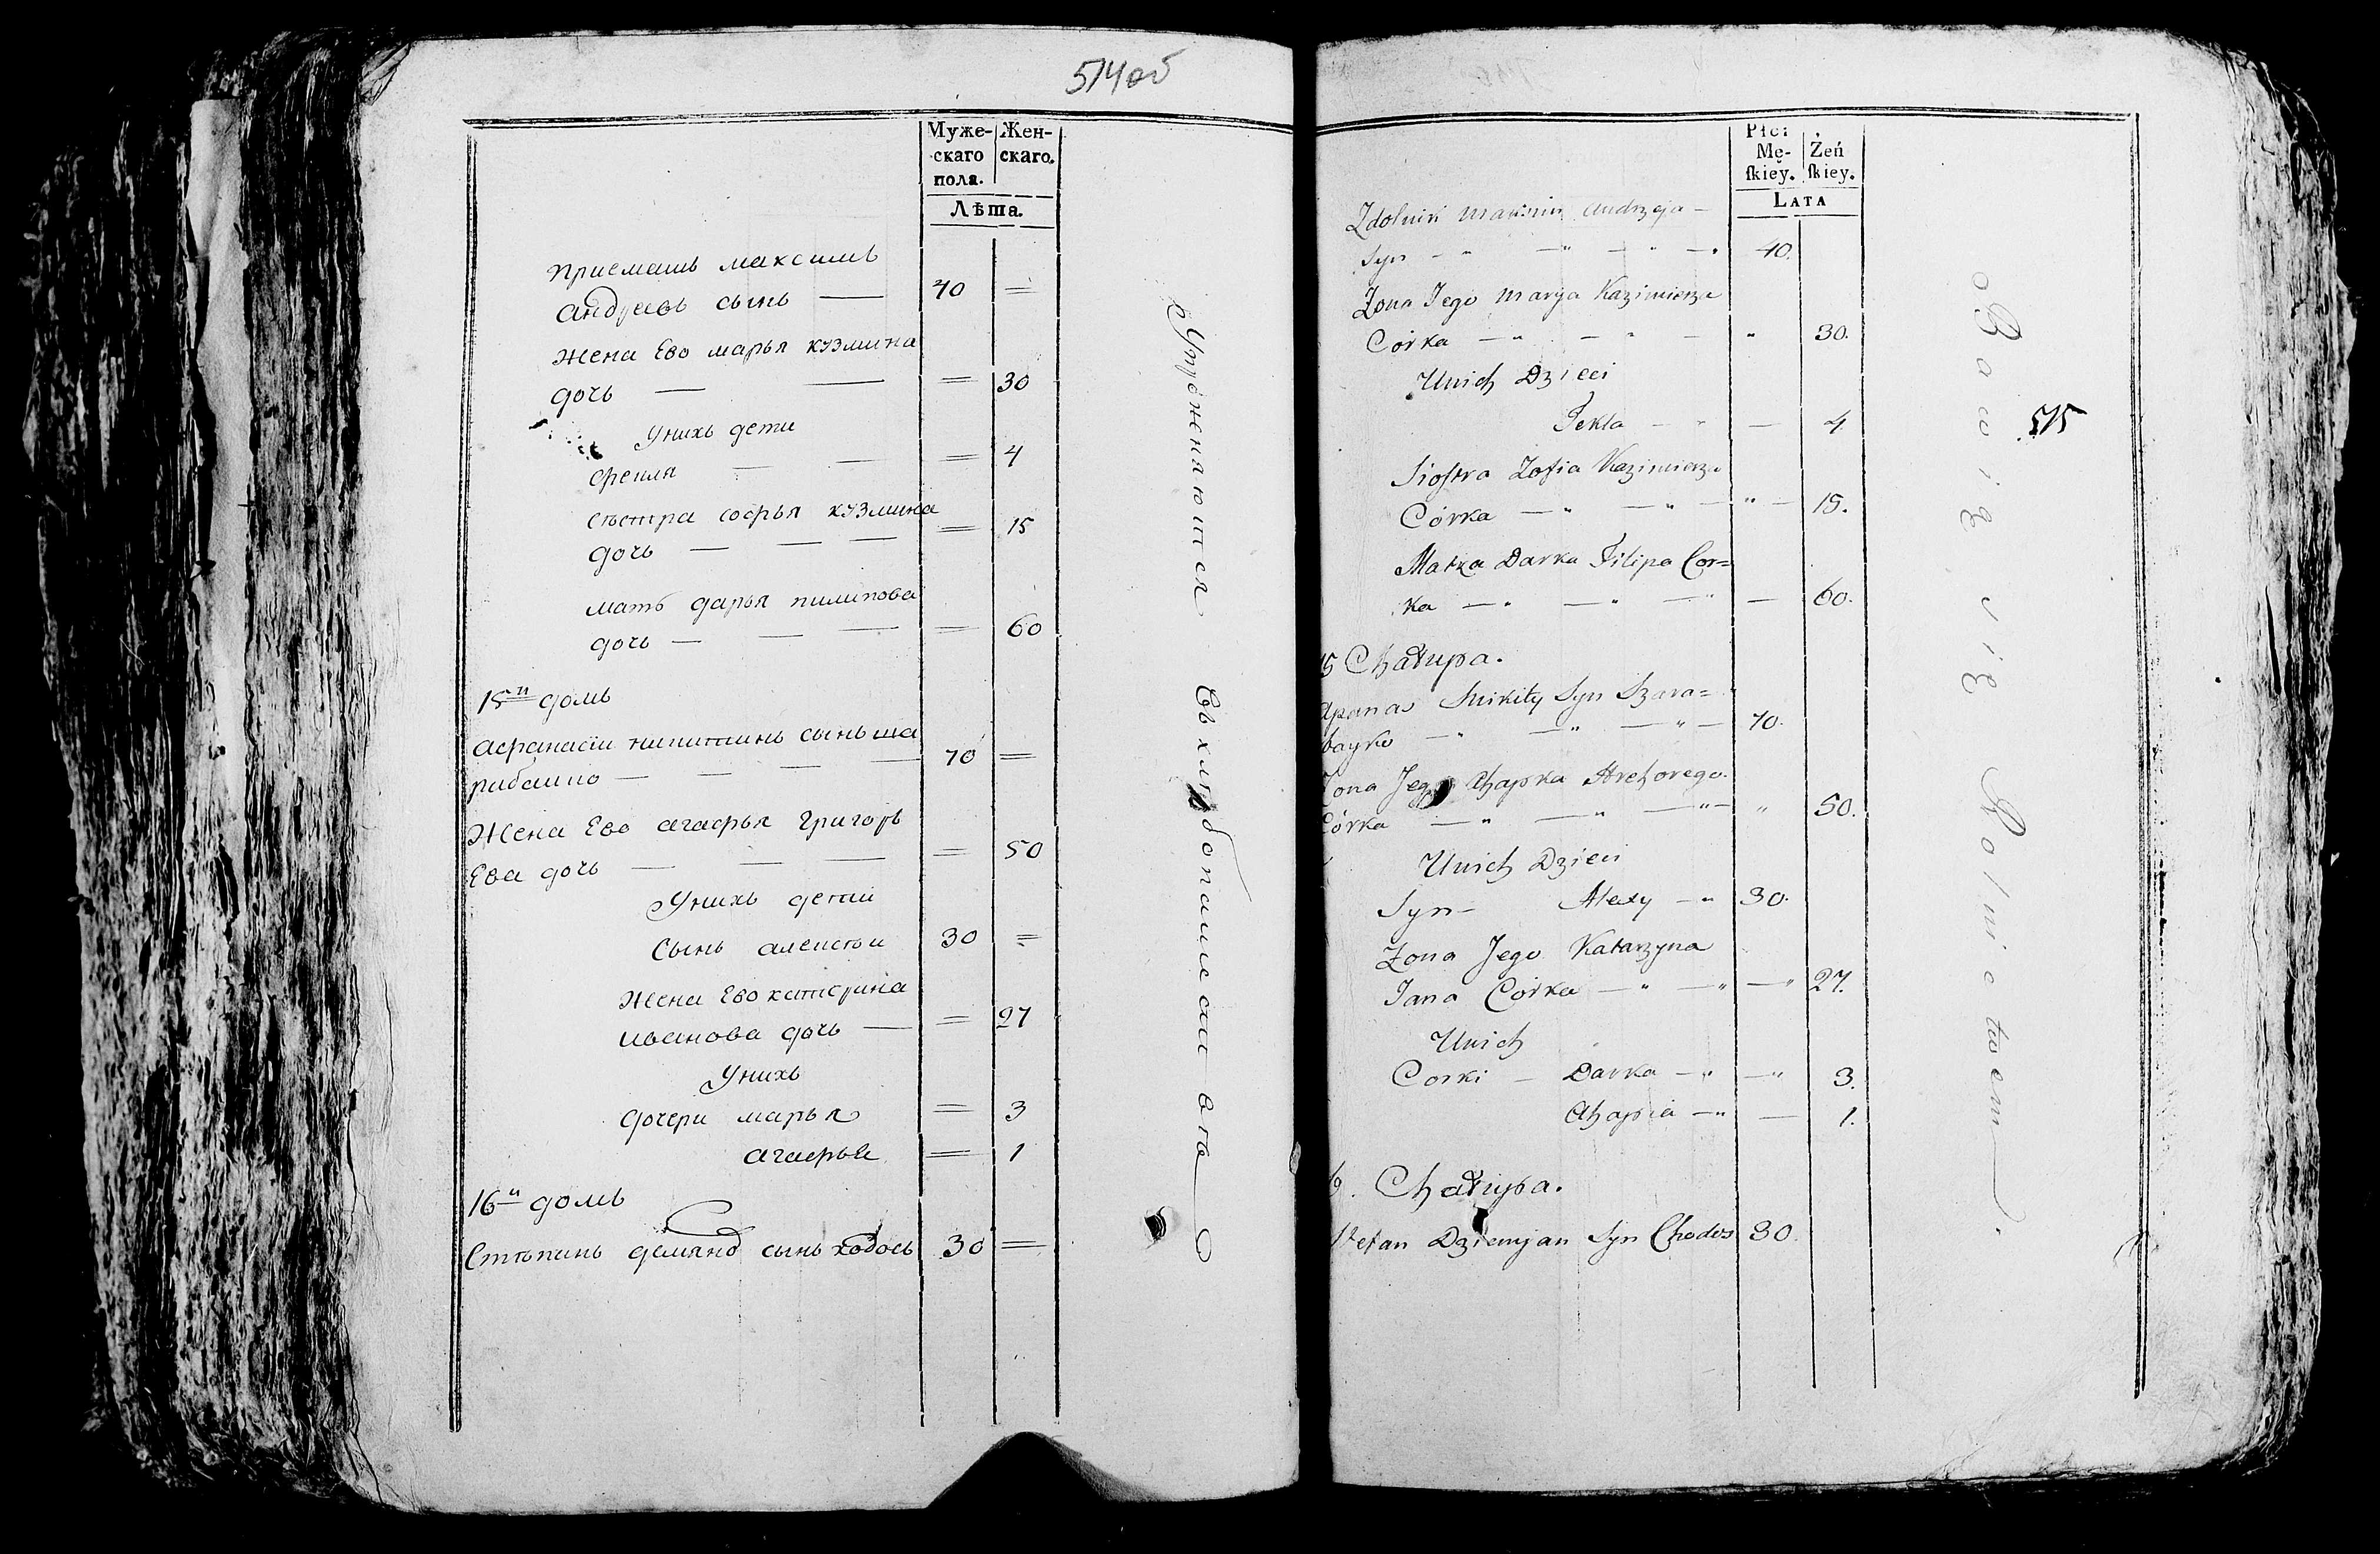 514об
Муже-
скаго
пола.
Жен-
скаго.
Лѣта.
приемашъ максимъ
андреевъ сынъ — 40 =
жена Ево марья кузмина
дочь — — = 30
Унихъ дети
фекля — — = 4
сѣстра софья кузмина
дочь — — — = 15
мать дарья пилипова
дочь — — — = 60
15й домъ
афанасіи никитинъ сынъ ша
рибаико — — — — 70 =
Жена Ево агафья григорь
Ева дочь — — — = 50
Унихъ дети
Сынъ алексѣи 30 =
жена Ево катерина
иванова дочь — = 27
Унихъ
дочери марья = 3
агафья = 1
16й домъ
Стѣпанъ демянъ сынъ ходосъ 30 =
Упражняются въ хлѣбопашества
515
Płci
Mę-
ſkiey.
Żeń
ſkiey.
LATA
Zdolnin Maximin Andrzeja —
Syn — 40.
Zona Jego Marya Kazimierza
Córka — 30.
Unich Dzieci
Tekla — 4
Siostra Zofia Kazimierza
Córka — 15.
Matka Darka Filipa Cor=
ka — 60.
15 Chałupa.
Apanas Mikity Syn Szara=
bayko — 70.
Zona Jego Ahapka Hrehorego
Córka — 50.
Unich Dzieci
Syn — Alexy — 30.
Zona Jego Katarzyna
Jana Córka — 27.
Unich
Corki — Darka — 3.
Ahapia — 1.
6. Chałupa.
Stefan Dziemjan Syn Chodos 30.
Bawią się Rolnictwem